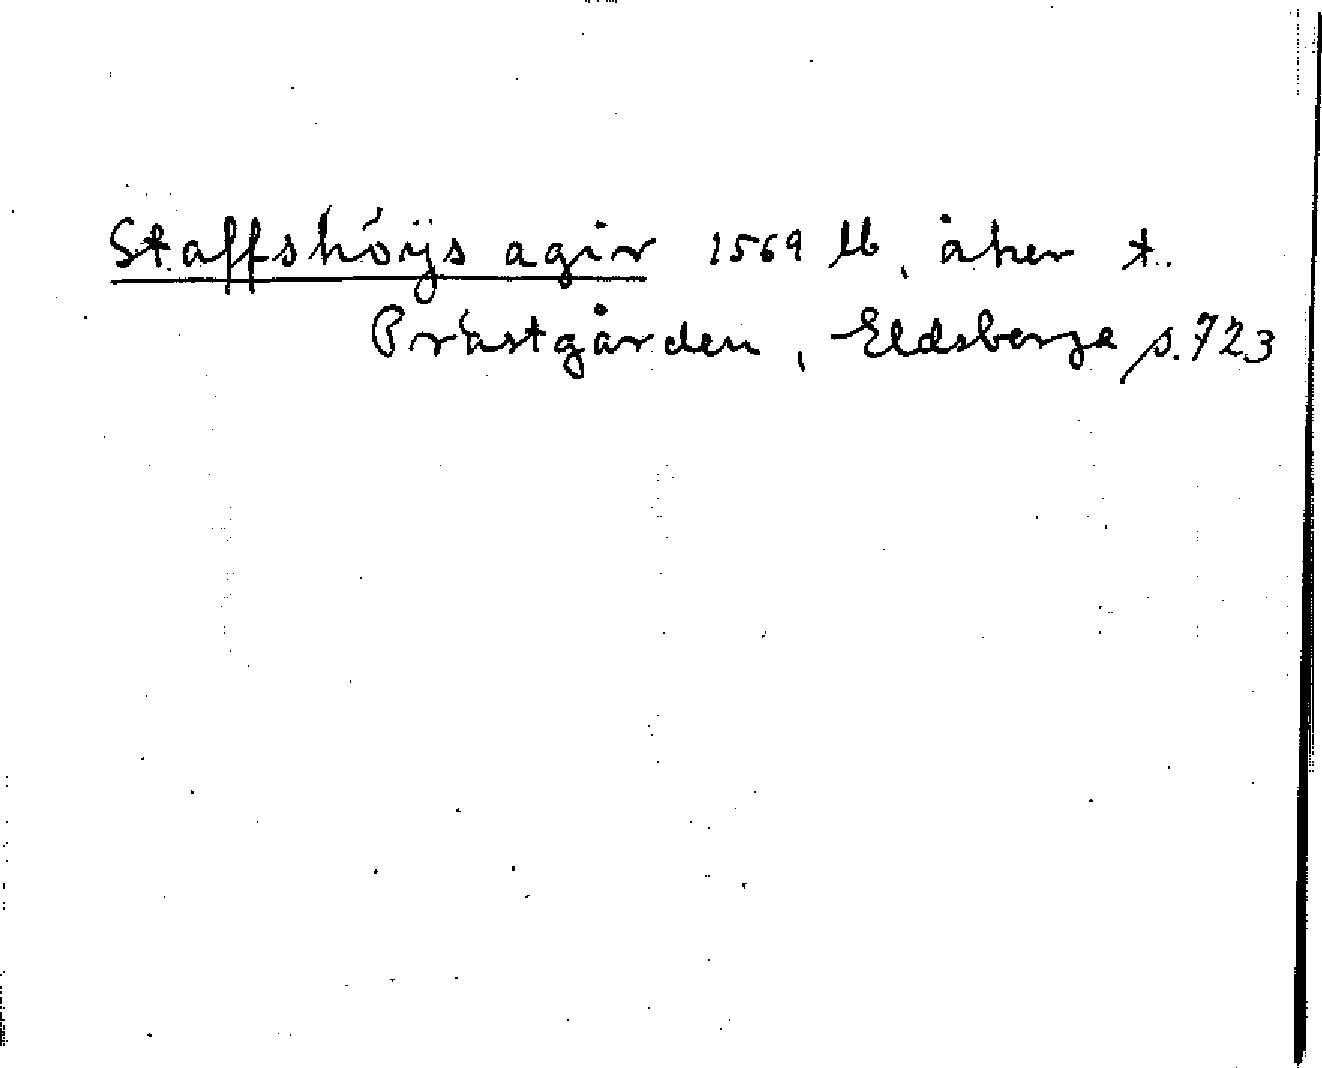 Staffshöÿs agir 1569 lb, åker t.
Prästgården, Eldsberga s.723